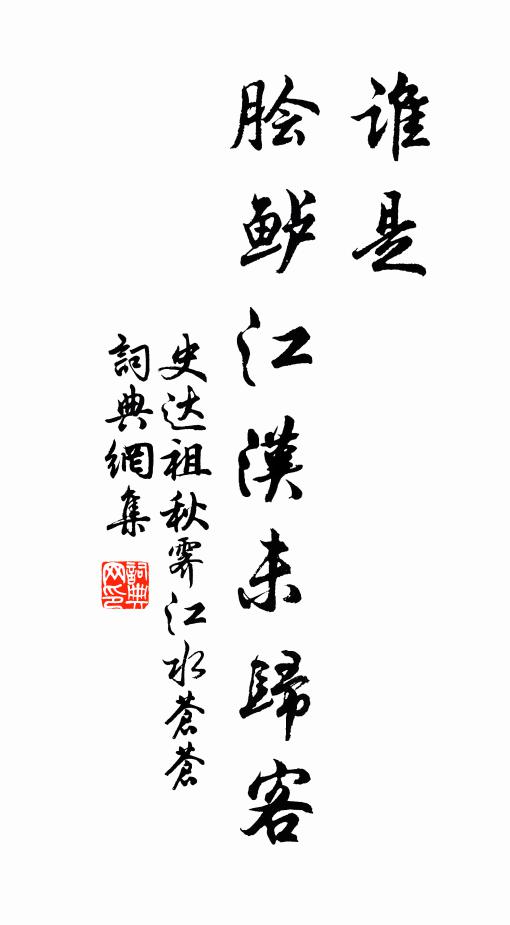 谁是
脍鲈江漢未歸客
史达祖秋霁江水蒼蒼
詞典網集
詞典网印